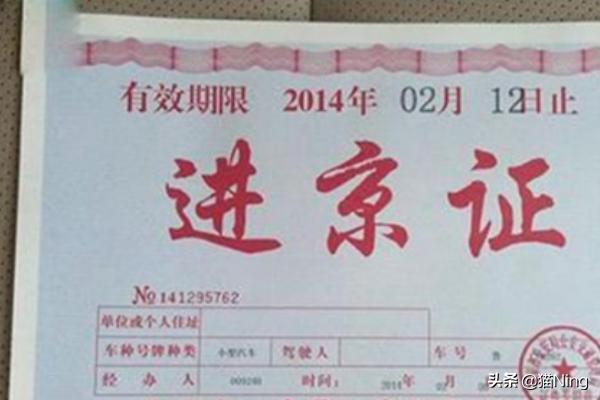 有效期限 2014年 02月 12日止
进京证
No 141295762
单位或个人住址
车种号牌种类 小型汽车 驾驶人 车号 鲁
经办人 009248 时间: 2014年 02月
头条 @猫Ning